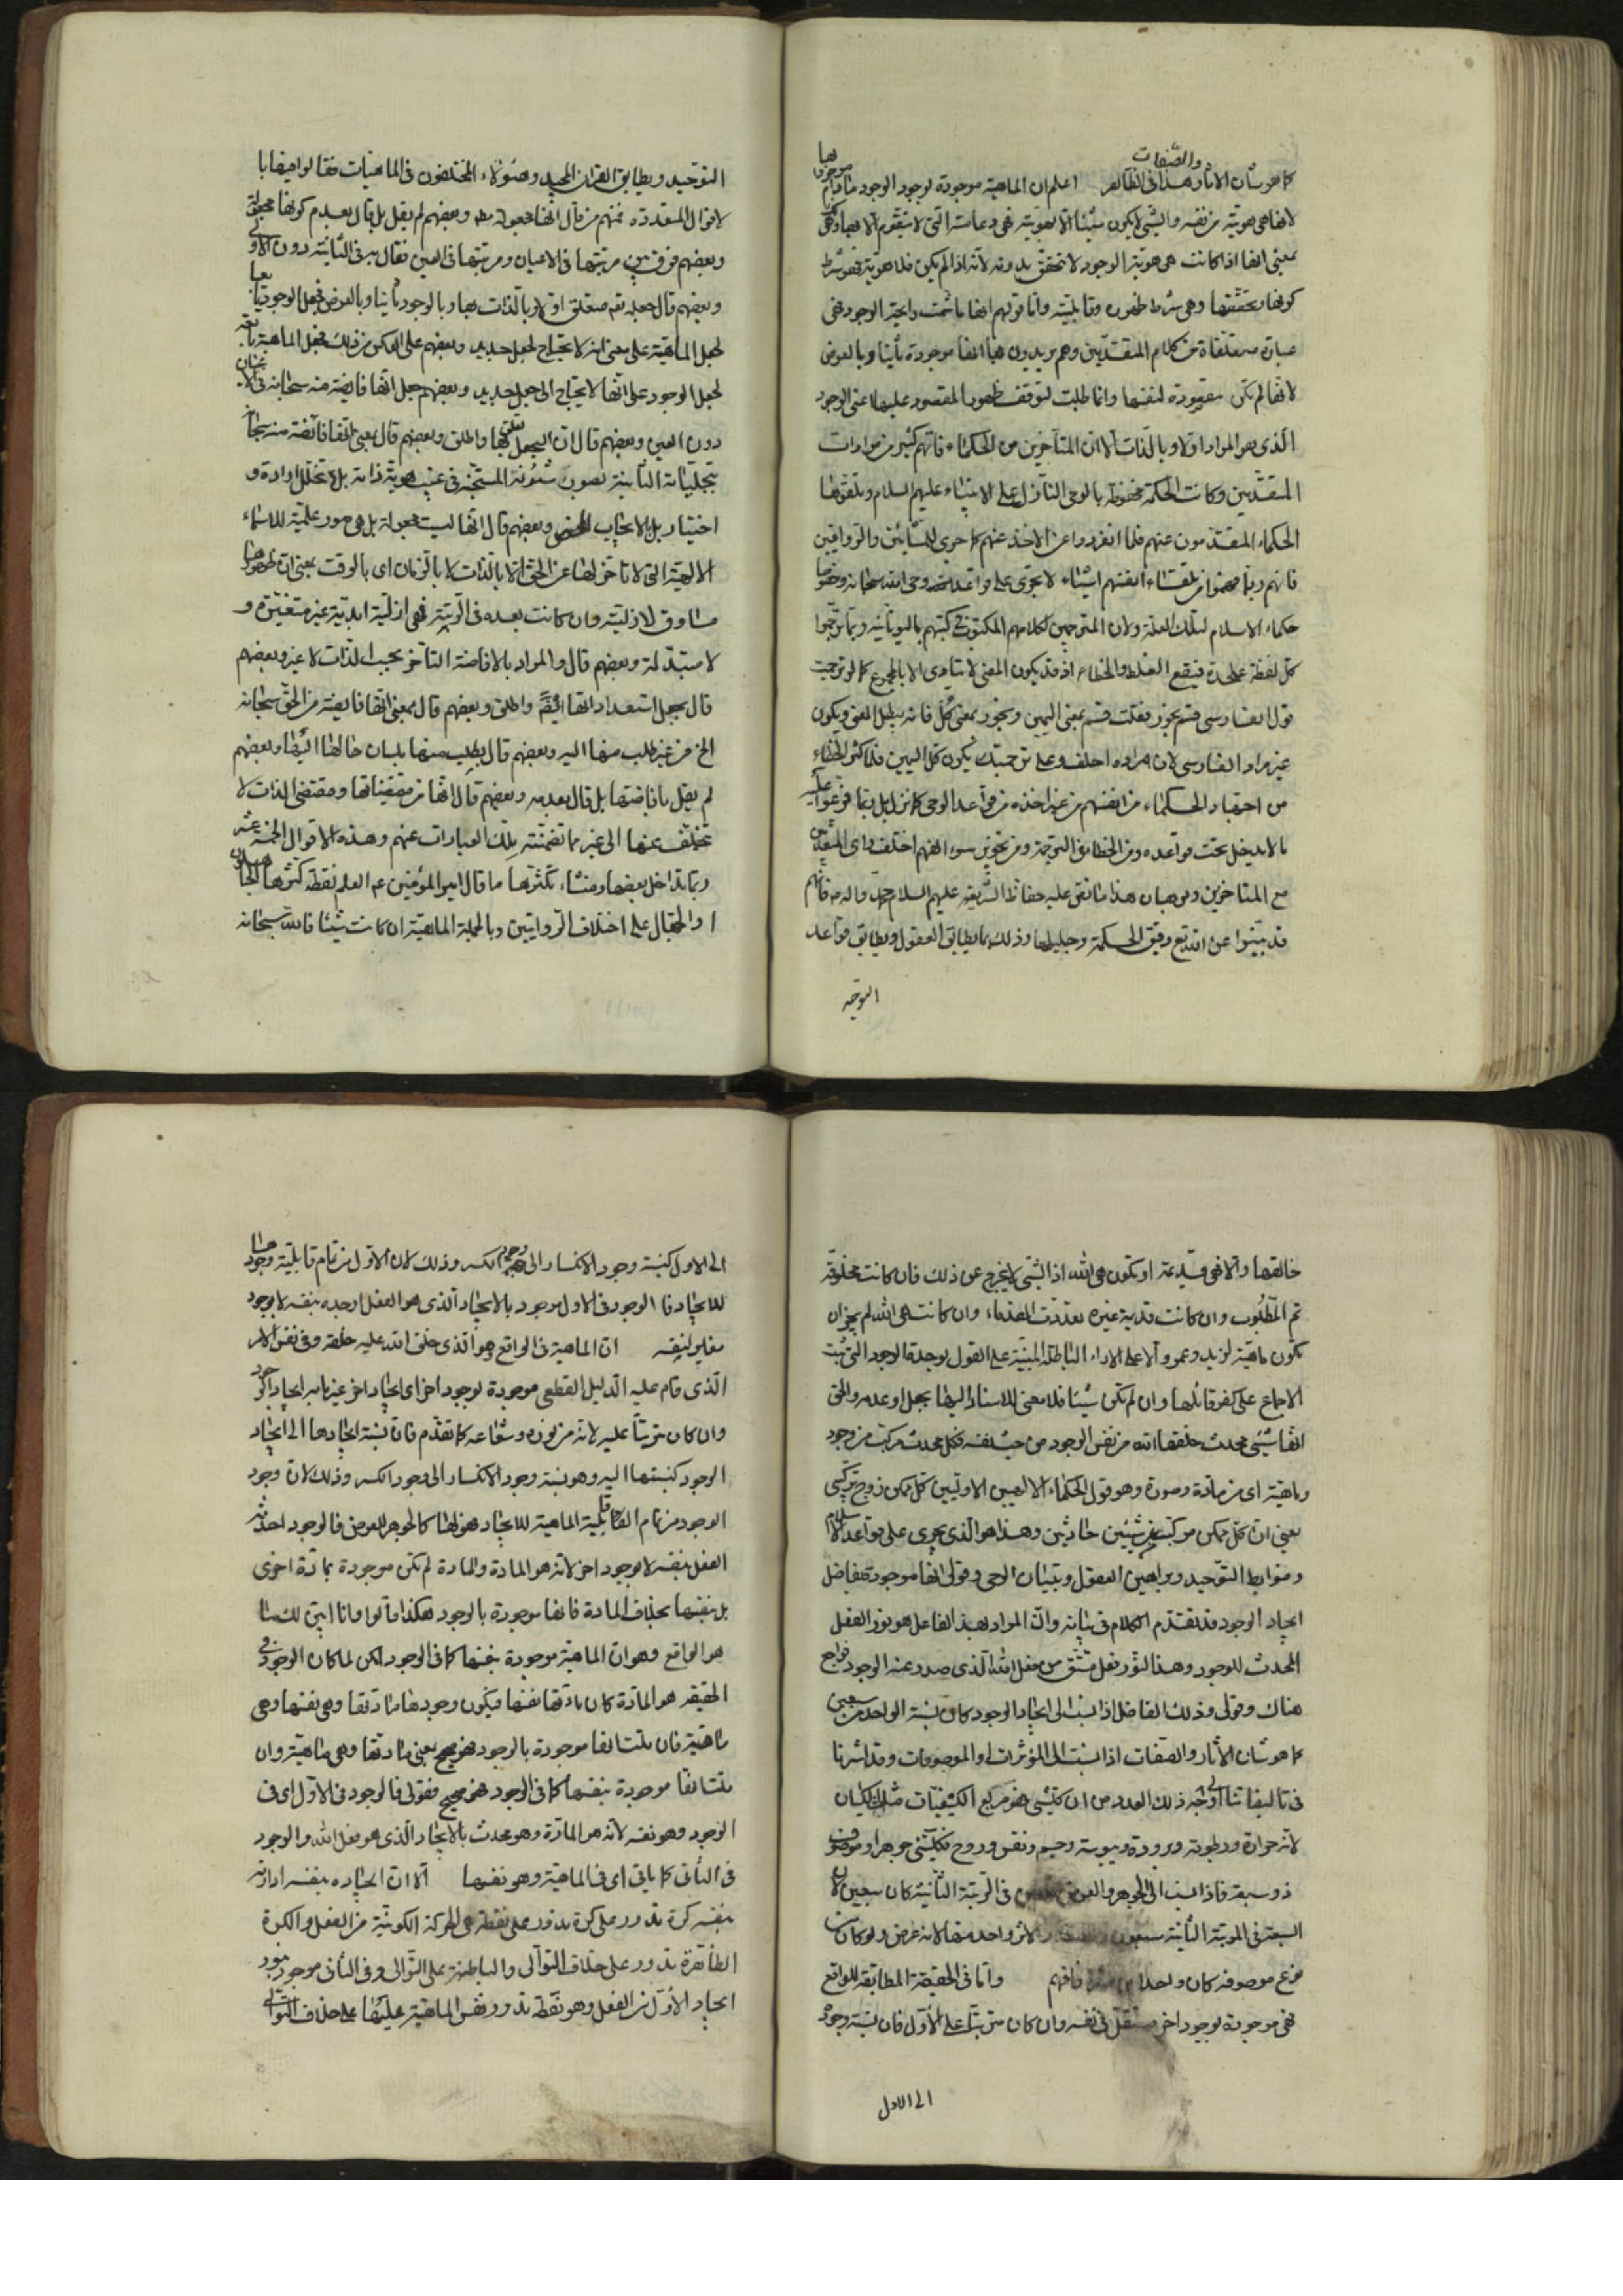 كما هو شأن الاثار والصفات هذا فى الظاهر اعلم ان الماهية موجودة بوجود الوجود مادام موجودا بها
لانها هى هويته من نفسه والشئ لا يكون شيئا الا بهويته فهى دعامته التى لا يتقوم الا بها
بمعنى انها اذا كانت هى هوية الوجود لا تتحقق بدونه لانه اذا لم يكن فلا هوية فهو شرط
كونها وتحققها وهى شرط ظهوره وقابليته واما قولهم انها ما شمت رائحة الوجود فهى
عبارة متلقاة من كلام المتقدمين وهم يريدون بها انها موجودة ثانيا وبالعرض
لانها لم تكن مقصودة لنفسها وانما طلبت لتوقف ظهور المقصود عليها اعنى الوجود
الذى هو المراد اولا وبالذات الا ان المتأخرين من الحكماء فاتهم كثير من مرادات
المتقدمين وكانت الحكمة محفوظة بالوحى النازل على الانبياء عليهم السلام وتلقوها
الحكماء المتقدمون عنهم فلما انفردوا عن الاخذ عنهم كما جرى للمشائين والرواقيين
فانهم ربما فهموا من تلقاء انفسهم اشياء لا تجرى على قواعد وحى الله سبحانه وخصوصا
حكماء الاسلام لتلك العلة ولان المترجمين لكلامهم المكتوب فى كتبهم باليونانية ربما ترجموا
كل لفظة على حدة فيقع الغلط والخطاء اذ قد يكون المعنى لا يتادى الا بالمجموع كما لو ترجمت
قول الفارسى قسم بخور فقلت قسم بمعنى اليمين وبخور بمعنى كُل فانه يبطل المعنى ويكون
غير مراد الفارسى لان مراده احلف وعلى ترجمتك يكون كل اليمين فلما كثر الخطاء
من اجتهاد الحكماء من انفسهم من غير اخذه من قواعد الوحى كما نزل بل ربما فرعوا عليه
ما لا يدخل تحت قواعده ومن الخطا فى الترجمة ومن تجويز سوء الفهم اختلف راى المتقدمين
مع المتاخرين وبرهان هذا ما نقى عليه حفاظ الشريعة عليهم السلام محمد واله ص فانهم
قد بينوا عن الله تع دقيق الحكمة وجليلها وذلك بما يطابق العقول ويطابق قواعد
التوحيد
التوحيد ويطابق القران المجيد وهؤلاء المختلفون فى الماهيات فقالوا فيها با
لاقوال المتعددة فمنهم من قال انها مجعولة مط وبعضهم لم يقل بل قال بعدم كونها مجعولة
وبعضهم فرق بين مرتبتها فى الاعيان ومرتبتها فى العين فقال به فى الثانية دون الاولى
وبعضهم قال جعله تع متعلق اولا وبالذات بها وبالوجود ثانيا وبالعرض فجعل الوجود تابعا
لجعل الماهية على معنى انه لا يحتاج لجعل جديد وبعضهم على العكس من ذلك فجعل الماهية تابعة
لجعل الوجود على انها لا يحتاج الى جعل جديد وبعضهم جعل انها فايضة منه سبحانه فى الاعيان
دون العين وبعضهم قال ان الجعل تعلق بها واطلق وبعضهم قال بمعنى انها فائضة منه سبحانه
بتجلياته الثانية بصور شئونه المستجنة فى غيب هوية ذاته بلا تخلل ارادة و
اختيار بل بالايجاب المحض وبعضهم قال انها ليست مجعولة بل هى صور علمية للاسماء
الالهية التى لا تاخر لها عن الحق الا بالذات لا بالزمان اى بالوقت بمعنى ان ظهورها
مساوق لازليته وان كانت بعده فى الرتبة فهى ازلية ابدية غير متغيرة و
لا متبدلة وبعضهم قال والمراد بالافاضة التاخر بحسب الذات لا غير وبعضهم
قال بجعل استعداداتها ايضا واطلق وبعضهم قال بمعنى انها فايضة من الحق سبحانه
الخ من غير طلب منها اليه وبعضهم قال بطلب منها بلسان حالها ايضا وبعضهم
لم يقل بافاضتها بل قال بعدمه وبعضهم قال انها من مقتضياتها ومقتضى الذات لا
يتخلف عنها الى غير ما تضمنته تلك العبارات عنهم وهذه الاقوال الخمسة عشر
ربما تداخل بعضها ومنشاء تكثرها ما قال امير المؤمنين ع العلم نقطة كثرها الجاهلون
او الجهال على اختلاف الروايتين وبالجملة الماهية ان كانت شيئا فالله سبحانه
خالقها والا فهى قديمة او تكون هى الله اذ الشئ لا يخرج عن ذلك فان كانت مخلوقة
تم المطلوب وان كانت قديمة غيره تعددت القدماء وان كانت هى الله لم يجز ان
تكون ماهية لزيد وعمرو الا على الاراء الباطلة المبنية على القول بوحدة الوجود التى ثبت
الاجماع على كفر قائلها وان لم تكن شيئا فلا معنى للاسناد اليها بجعل او عدمه والحق
انها شئ محدث خلقها الله من نفس الوجود من حيث نفسه فكل محدث مركب من وجود
وماهية اى من مادة وصورة وهو قول الحكماء الالهيين الاوليين كل ممكن زوج تركيبى
يعنى ان كل ممكن مركب من شيئين حادثين وهذا هو الذى يجرى على قواعد الاسلام
وضوابط التوحيد وبراهين العقول وتبيان الوحى وقولى انها موجودة بفاضل
ايجاد الوجود قد تقدم الكلام فى بيانه وان المراد بهذا الفاعل هو نور الفعل
المحدث للوجود وهذا النور فعل مشتق من فعل الله الذى صدر عنه الوجود فراجع
هناك وقولى وذلك الفاضل اذا نسب الى ايجاد الوجود كان نسبة الواحد من سبعين
كما هو شان الاثار والصفات اذا نسبت الى المؤثرات والموصوفات وقد اشرنا
فى تاليفاتنا الى وجه ذلك العدد من ان كل شئ هو مربع الكيفيات مثلث الكيان
لانه حرارة ورطوبة وبرودة ويبوسة وجسم ونفس وروح فكل شئ جوهر او موصوف
ذو سبعة فاذا نسب الى الجوهر والعرض فى الرتبة الثانية كان سبعين لان
السبعة فى المرتبة الثانية سبعون الاثر واحد منها لانه عرض ولو كان
فرع موصوفه كان واحدا من عشرة فافهم واما فى الحقيقة المطابقة للواقع
فهى موجودة بوجود اخر مستقل فى نفسه وان كان مترتبا على الاول فان نسبة وجود
الى الاول
الى الاول كنسبة وجود الانكسار الى وجود الكسر وذلك لان الاول من تمام قابلية وجودها
للايجاد فالوجود فى الاول موجود بالايجاد الذى هو الفعل اوجده بنفسه لا بوجود
مغاير لنفسه ان الماهية فى الواقع وهو الذى خلق الله عليه خلقه وفى نفس الامر
الذى قام عليه الدليل القطعى موجودة بوجود اخر اى ايجاد اخر غير ما به ايجاد الوجود
وان كان مترتبا عليه لانه من نوره وشعاعه كما تقدم فان نسبة ايجادها الى ايجاد
الوجود كنسبتها اليه وهو نسبة وجود الانكسار الى وجود الكسر وذلك لان وجود
الوجود من تمام القابلية الماهية للايجاد فهو لها كالجوهر للعرض فالوجود احدثه
الفعل بنفسه لا بوجود اخر لانه هو المادة والمادة لم تكن موجودة بمادة اخرى
بل بنفسها بخلاف المادة فانها موجودة بالوجود هكذا قالوا وانا ابين لك ما
هو الواقع وهو ان الماهية موجودة بنفسها كما فى الوجود لكن لما كان الوجود فى
الحقيقة هو المادة كان مادتها نفسها فيكون وجودها مادتها وهى نفسها وهى
ماهية فان قلت انها موجودة بالوجود فهو صحيح بمعنى مادتها وهى ماهية وان
قلت انها موجودة بنفسها كما فى الوجود فهو صحيح فقولى فالوجود فى الاول اى فى
الوجود وهو نفسه لانه هو المادة وهو محدث بالايجاد الذى هو فعل الله والوجود
فى الثانى كما ياتى اى فى الماهية وهو نفسها الا ان ايجاده بنفسه ادارته
بنفسه كرة تدور على كرة تدور على نقطة هى الحركة الكونية من الفعل والكرة
الظاهرة تدور على خلاف التوالى والباطنة على التوالى وفى الثانى موجود بوجود
ايجاد الاول من الفعل وهو نقطة تدور نفس الماهية عليها على خلاف التوالى